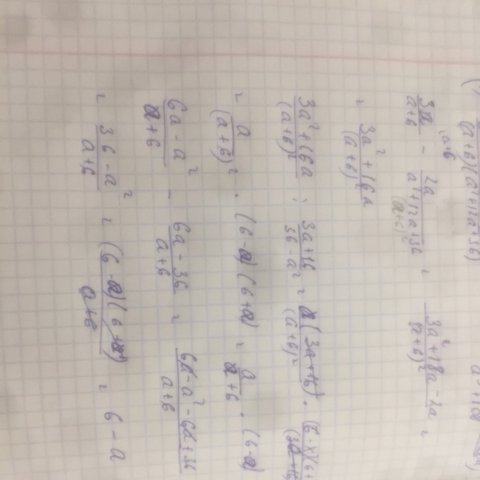 (a+6)(a²+12a+36)
3a/(a+6) - 2a/(a²+12a+36) = (3a²+18a-2a)/(a+6)² =
= (3a²+16a)/(a+6)²
(3a²+16a)/(a+6)² : (3a+16)/(36-a²) = a(3a+16)/(a+6)² ·
= a/(a+6)² · (6-a)(6+a) = a/(a+6) · (6-a)
(6a-a²)/(a+6) - (6a-36)/(a+6) = (6a-a²-6a+36)/(a+6)
= (36-a²)/(a+6) = (6-a)(6+a)/(a+6) = 6-a